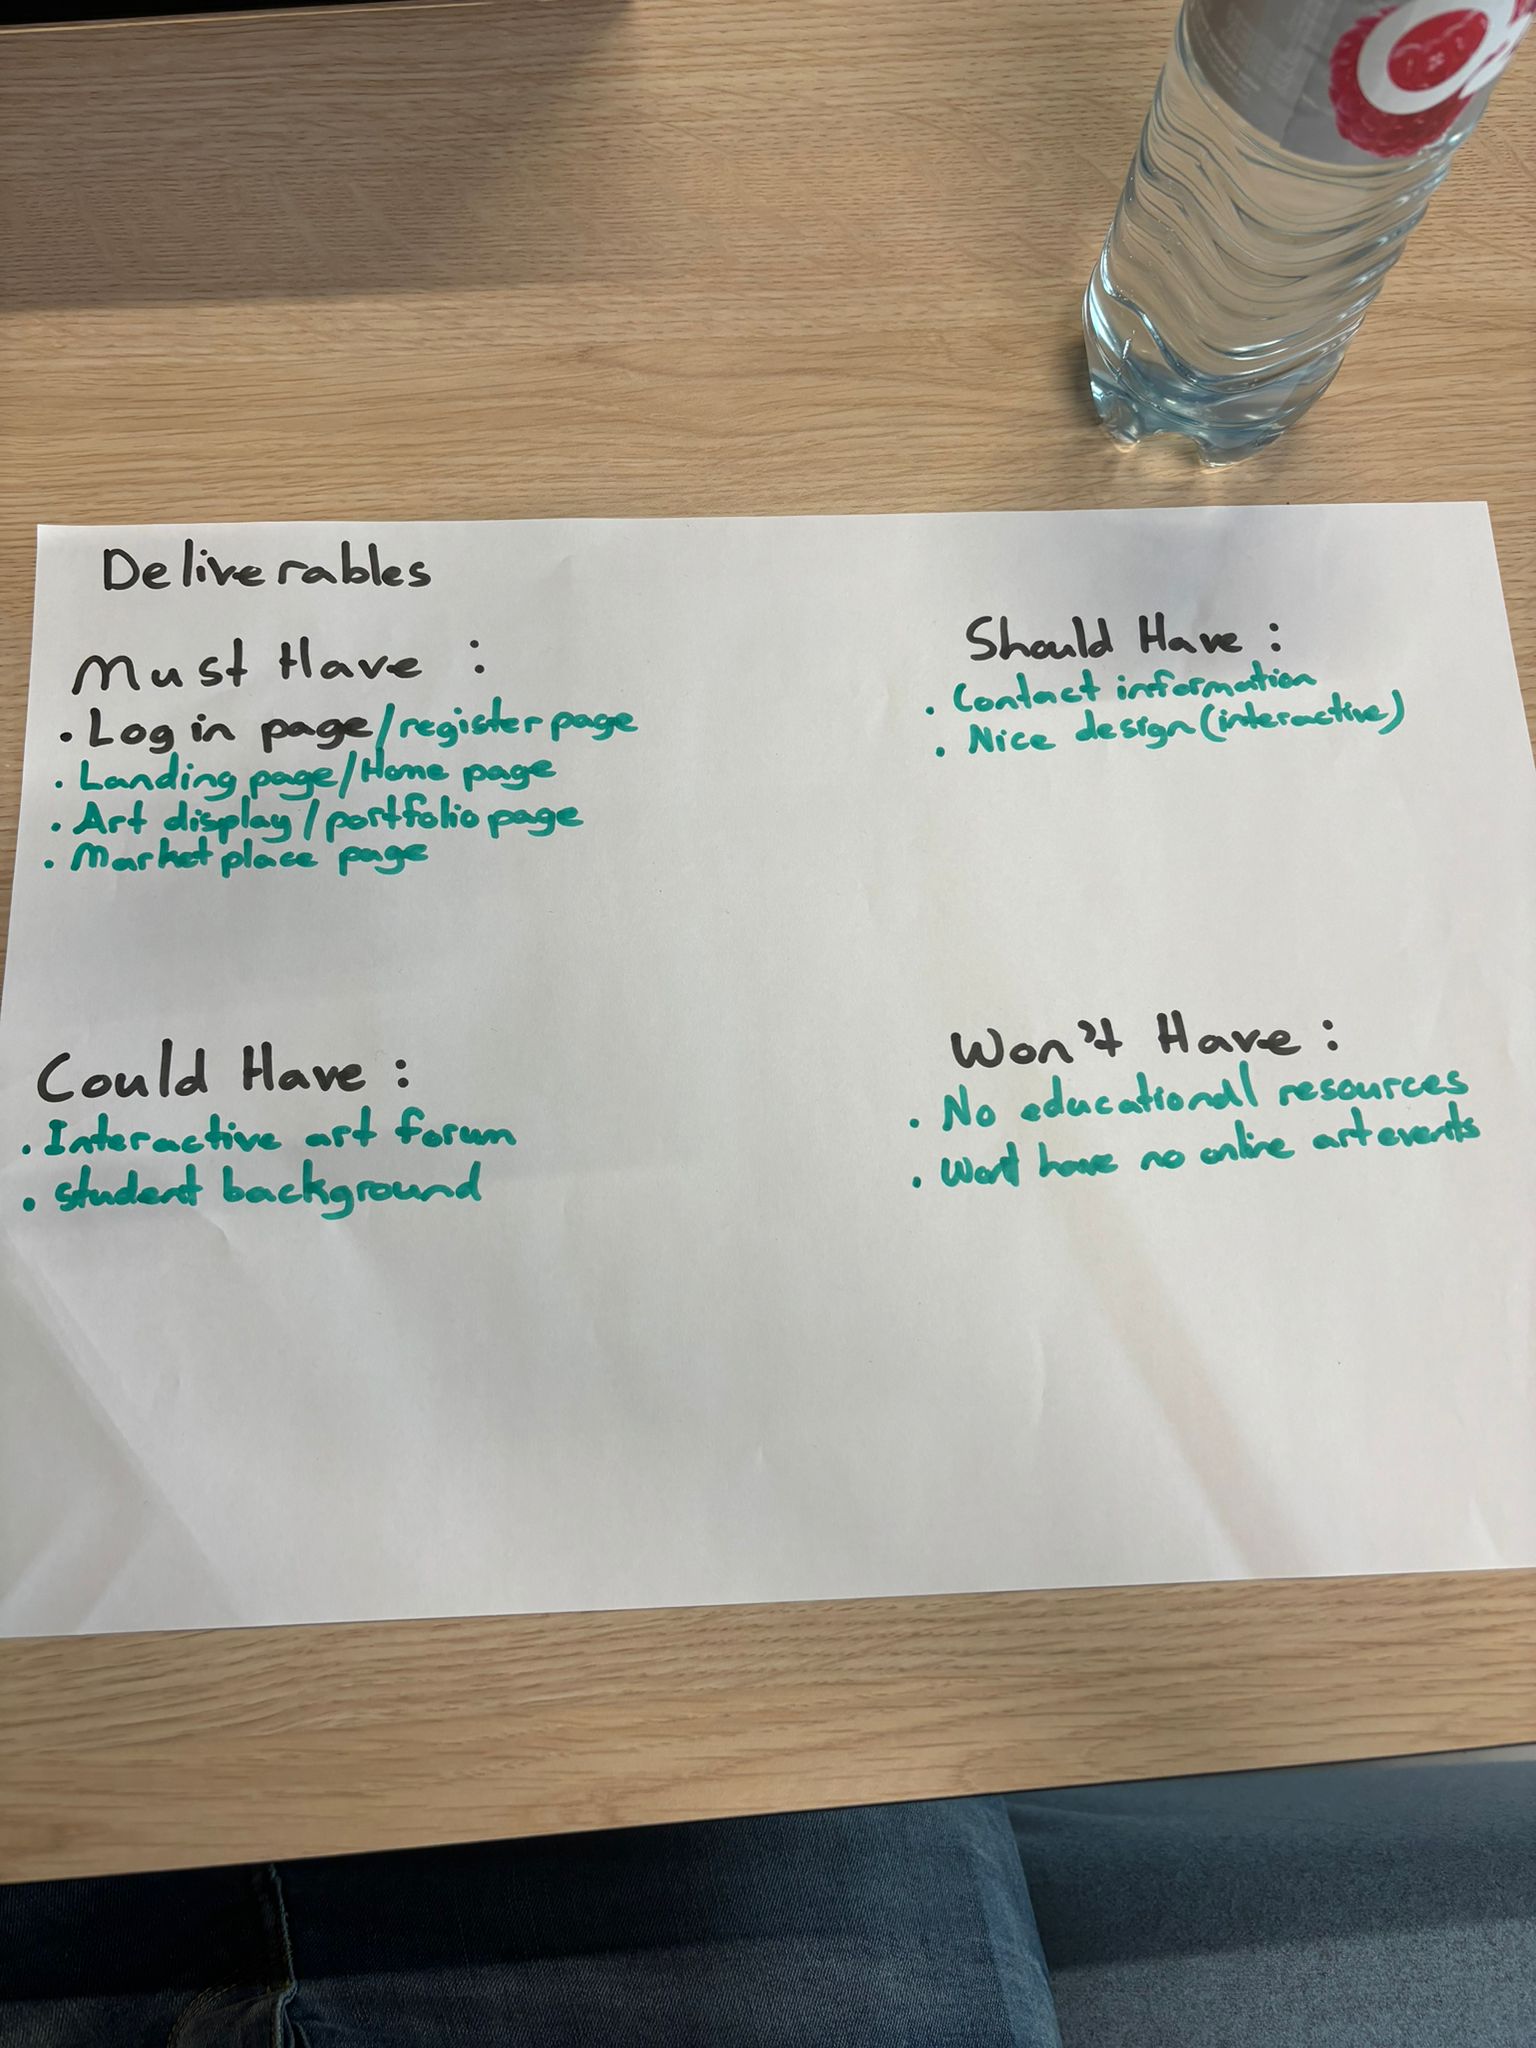 Deliverables
Must Have :
• Log in page/register page
• Landing page/Home page
• Art display/portfolio page
• Marketplace page
Should Have :
• Contact information
• Nice design (interactive)
Could Have :
• Interactive art forum
• student background
Won't Have :
• No educational resources
• Wont have no online art events